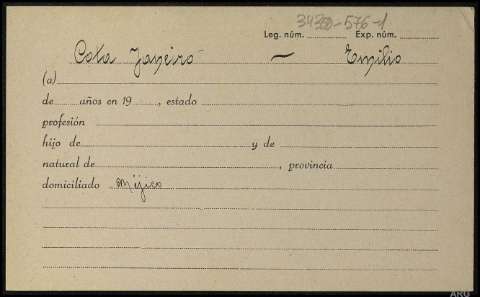 3430-576-1
Leg. núm. Exp. núm.
Cota Janeiro — Emilio
(a)
de años en 19 , estado
profesión
hijo de y de
natural de , provincia
domiciliado Mijico
ARU